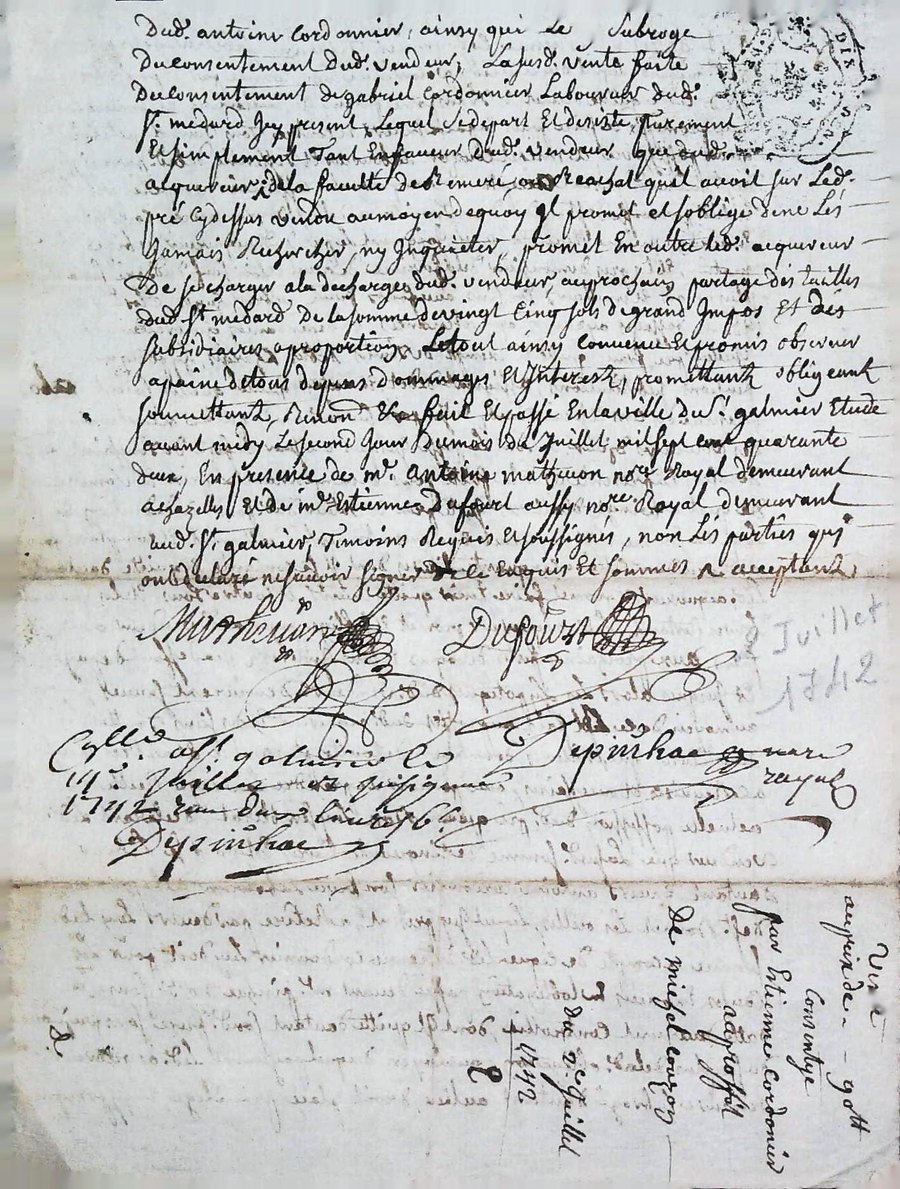 Dud. antoine Cordonnier, ainsy qui le Subroge
Du consentement dud. vendeur, La susd. vente faite
Du consentement de gabriel Cordonnier Laboureur dud.
St. medard Jcy present, Lequel se depart Et desiste purement
Et simplement Tant En faveur Dud. vendeur que dud.
acquereur, de la faculté de Remeré ou Reachat quil avoit sur Led.
pré Cy dessus vendu au moyen de quoy Jl promet et soblige de ne Les
Jamais Rechercher, ny Jnquieter, promet En outre led. acquereur
De se charger a la decharge dud. vendeur, au prochain partage des tailles
dud. St medard De la somme de vingt Cinq sols de grand Jmpos Et des
subsidiaires a proportion, Le tout ainsy convenu Et promis observer
a paine de tous depens dommages Et Jnterestz, promettantz obligeant
soumettantz, Renon. &c fait Et passé En la ville du St. galmier Etude
avant midy Le second Jour Du mois du Juillet mil sept cent quarante
deux, En presence de mr. antoine mathevon nore Royal demeurant
a chazelles Et de mr. Estienne Dufourt aussy nore. Royal demeurant
aud. St. galmier, Temoins Requis Et soussignés, non Les parties qui
ont declaré ne scavoir signer de ce Enquis Et sommés acceptantz
Mathevon Dufourt
2 Juillet
1742
Cllé a St. galmier le Depinhac nore
14e. Juillet royal
1742
Depinhac
Vis
au prix de - - 90tt
Consentye
par Estienne Cordonier
au proffit
De miegd couzon
du 2e Juillet
1742